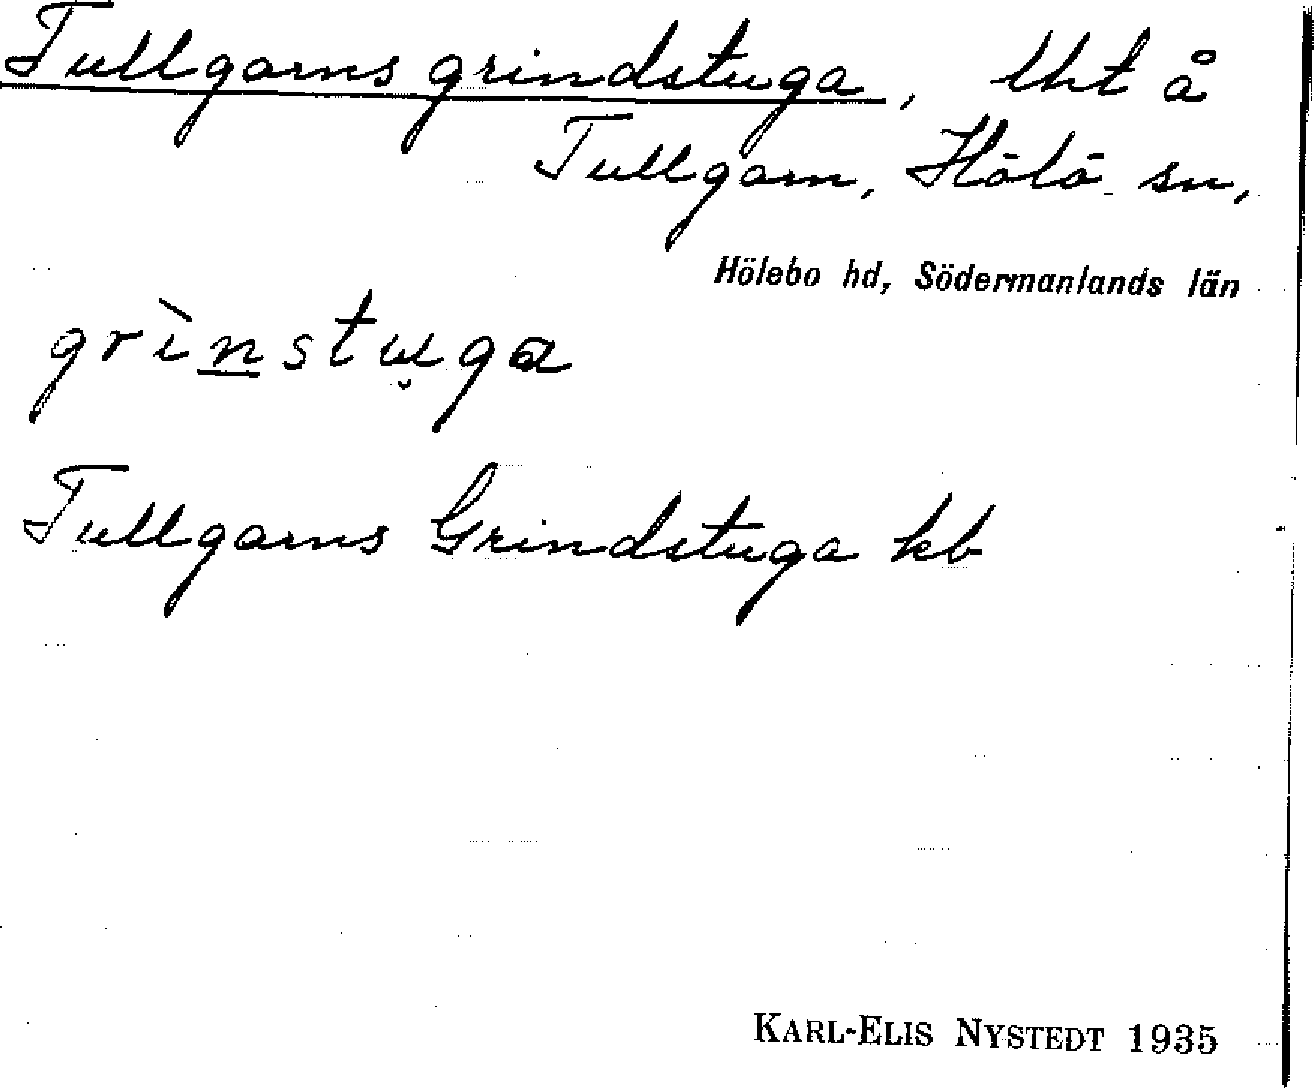 Tullgarns grindstuga, lht å
Tullgarn, Hölö sn,
Hölebo hd, Södermanlands län
grìnstuga
Tullgarns Grindstuga kb
KARL-ELIS NYSTEDT 1935